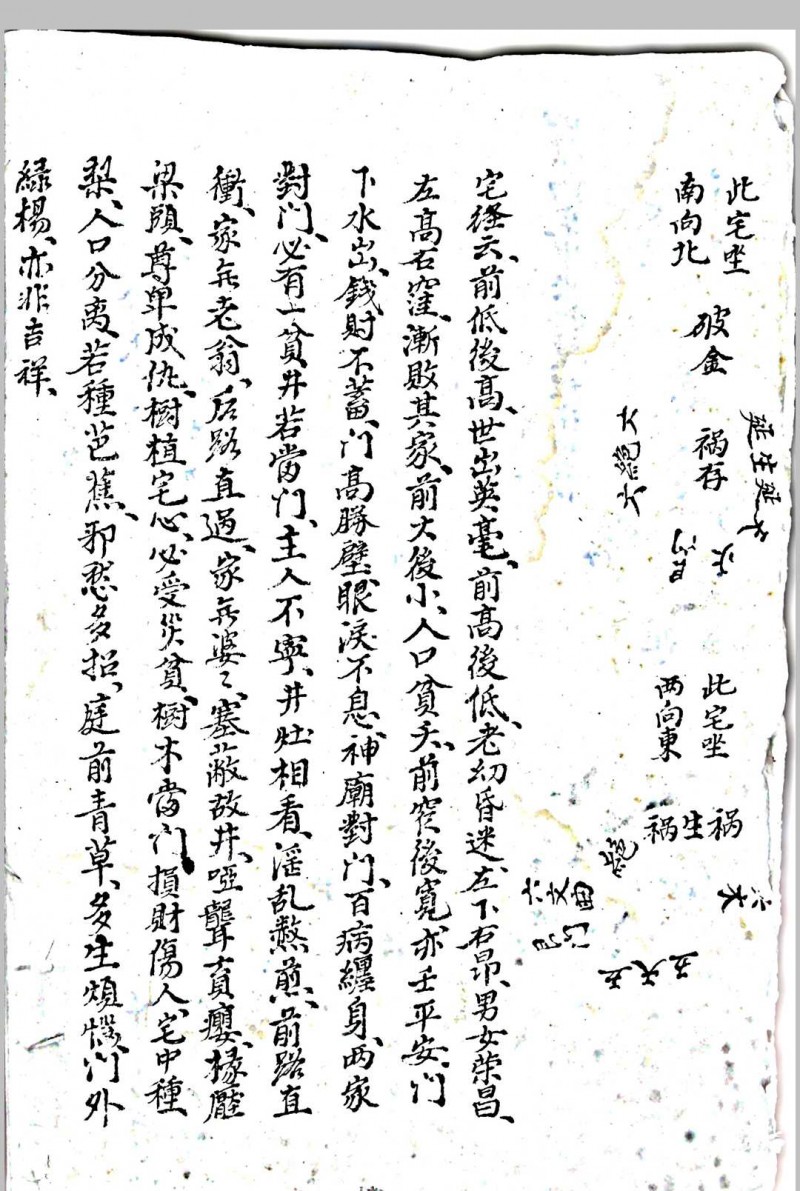 此宅坐
南向北
破金
祸存
此宅坐
西向東
祸生祸
宅経云、前低後高、世出英毫、前高後低、老幼昏迷、左下右昂、男女荣昌、
左髙右窪、漸敗其家、前大後小、人口貧夭、前窄後寬、亦主平安、門
下水出、錢財不蓄、门高勝壁、眼淚不息、神廟對門、百病纏身、两家
對门、必有一貧、井若當门、主人不寧、井灶相看、淫乱熬煎、前路直
衝、家無老翁、后路直過、家無婆々、塞蔽故井、哑聾盲癭、椽壓
梁頭、尊卑成仇、樹植宅心、必受災貧、樹木當门、損財傷人、宅中種
梨、人口分离、若種芭蕉、邪愁多招、庭前青草、多生煩惱、门外
緑楊、亦非吉祥、